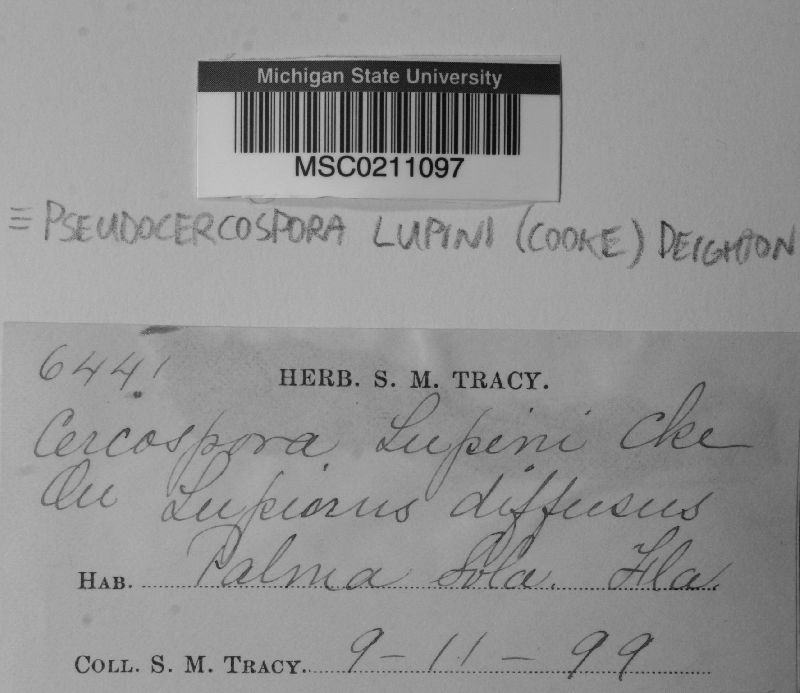 Michigan State University
MSC0211097
≡ PSEUDOCERCOSPORA LUPINI (COOKE) DEIGHTON
6441
HERB. S. M. TRACY.
Cercospora Lupini Cke
On Lupinus diffusus
HAB. Palma Sola. Fla.
COLL. S. M. TRACY. 9-11-99